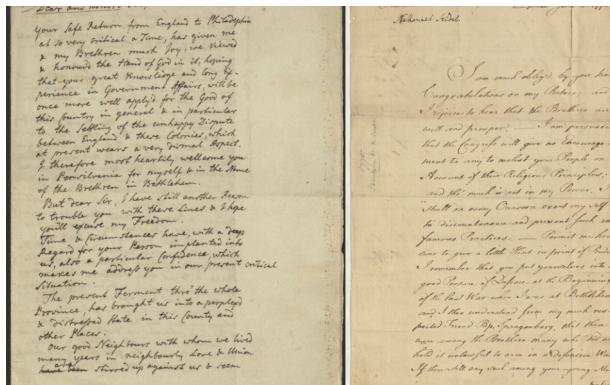 Dear and honor'd
your Safe Return from England to Philadelphia
at so very critical a Time, has given me
& my Brethren much Joy, we viewed
& honour'd the Hand of God in it, hoping
that your great Knowledge and long Ex-
perience in Government Affairs, will be
once more well apply'd for the Good of
this Country in general & in particular
to the Settling of the unhappy Dispute
between England & these Colonies, which
at present wears a very dismal Aspect.
I therefore most heartily wellcome you
in Pensilvania for myself & in the Name
of the Brethren in Bethlehem.
But dear Sir, I have still another Reason
to trouble you with these Lines & I hope
you'll excuse my Freedom.
Time & Circumstances have, with a deep
Regard for your Person implanted into
us, also a particular Confidence, which
makes me address you in our present critical
Situation.
The present Ferment thro' the whole
Province, has brought us into a perplex'd
& distressed State in this County and
other Places.
Our good Neighbours with whom we lived
many years in neighbourly Love & Union
are stirred up against us & seem
Nathaniel Seidel
I am much oblig'd by your kind
Congratulations on my Return; and
I rejoice to hear that the Brethren are
well and prosper. I am persuaded
that the Congress will give no Encourage-
ment to any to molest your People on
Account of their Religious Principles;
and tho' much is not in my Power, I
shall on every Occasion exert my self
to discountenance and prevent such in-
famous Practices. Permit me how-
ever to give a little Hint in point of Prudence
I remember that you put yourselves into a
good Posture of Defence at the Beginning
of the last War when I was at Bethlehem
and I then understood from my much res-
pected Friend Bp. Spangenberg, that there
were among the Brethren many who did not
hold it unlawful to arm in a defensive War.
If there be still any such among your young Men